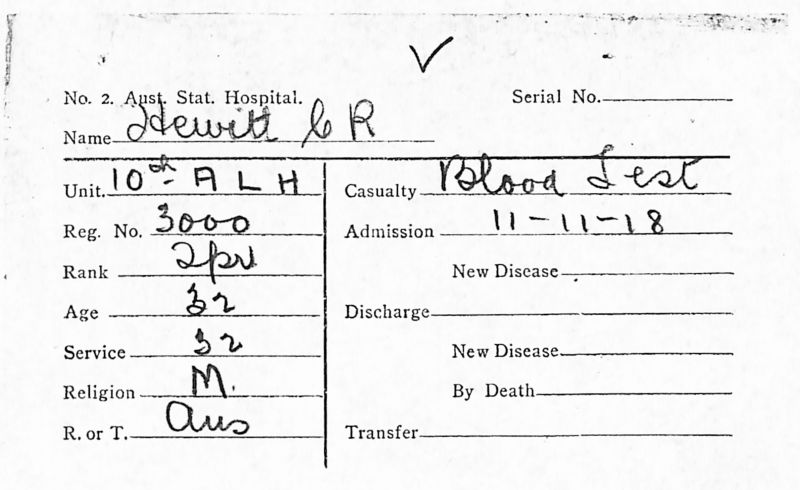 No. 2. Aust. Stat. Hospital.
Serial No.
Name Hewitt C R
Unit. 10th A L H
Casualty Blood Test
Reg. No. 3000
Admission 11-11-18
Rank Tpr
New Disease
Age 32
Discharge
Service 32
New Disease
Religion M.
By Death
R. or T. Aus
Transfer